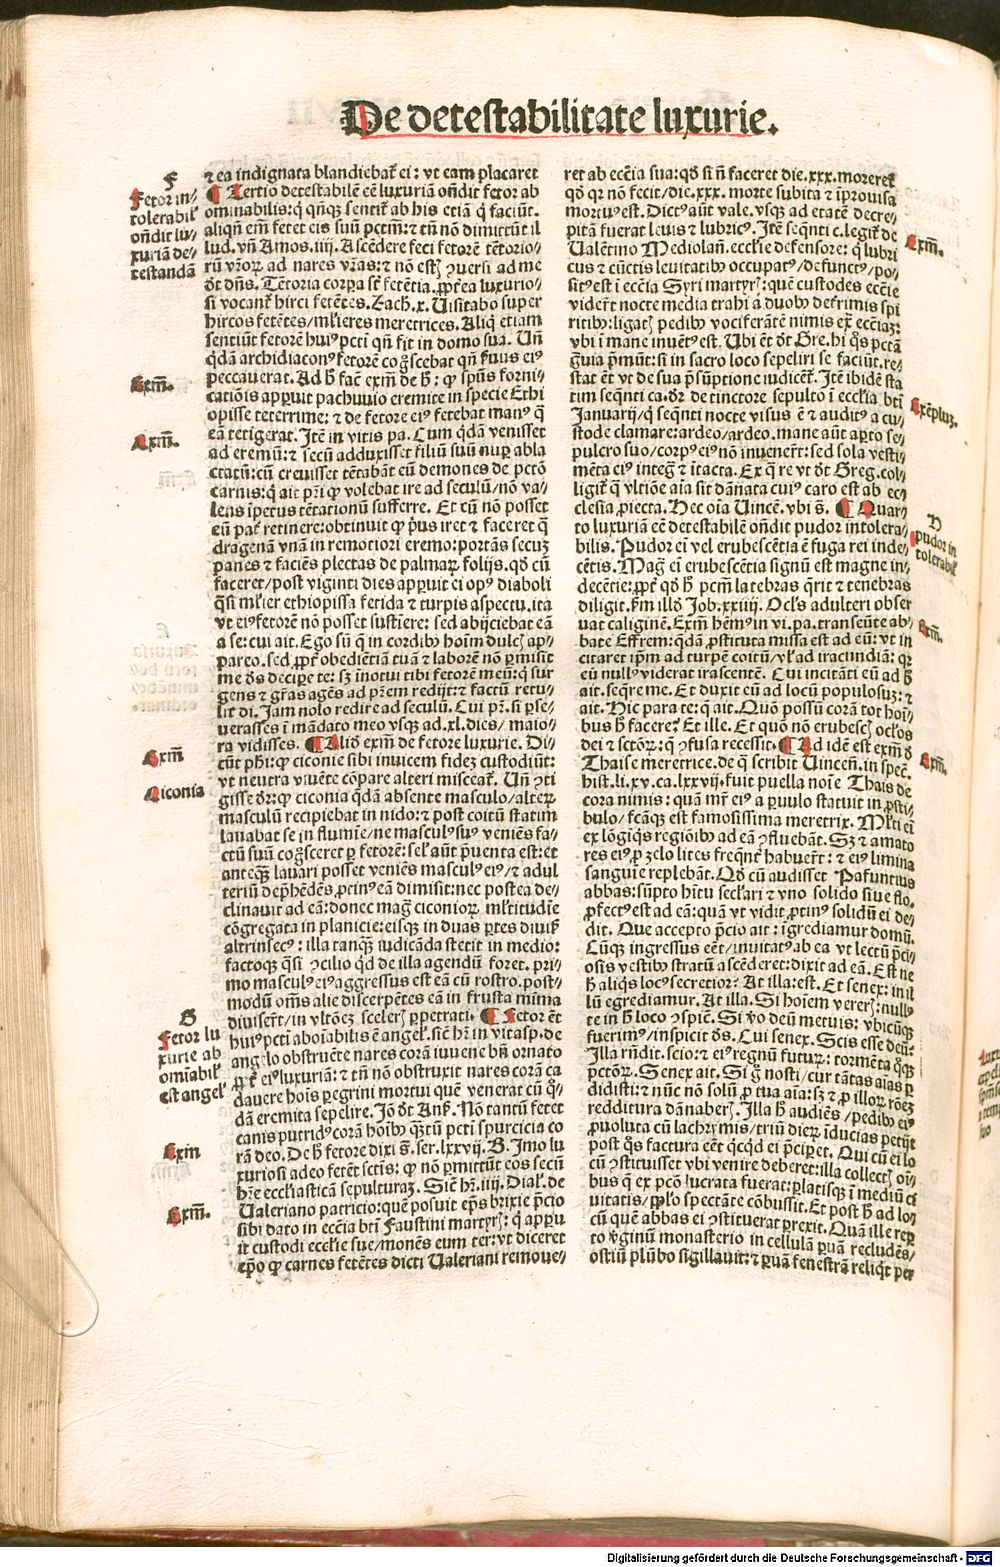 De detestabilitate luxurie.
F
Fetor in-
tolerabil'
oñdit lu-
xuriã de-
testandã
Exm̃.
Exm̃.
Exm̃
Ciconia
G
Fetor lu
xurie ab
omĩabil'
est angel'
Exm̃
Exm̃.
⁊ ea indignata blandiebat̃ ei: vt eam placaret
¶ Tertio detestabilẽ eẽ luxuriã oñdit fetor ab
ominabilis: q̃ qñq3 sentit̃ ab his etiã q̃ faciũt.
aliqñ em̃ fetet eis suũ pctm̃: ⁊ tñ nõ dimittũt il
lud. vñ Amos .iiij. Ascẽdere feci fetorẽ tẽtorio-
rũ vr̃oꝝ ad nares vr̃as: ⁊ nõ estꝭ ꝯuersi ad me
dt̃ dñs. Tẽtoria corꝑa st̃ fetẽtia. ꝓpt̃ea luxurio-
si vocant̃ hirci fetẽtes. Zach. x. Uisitabo super
hircos fetẽtes/ ml̃ieres meretrices. Aliq̃ etiam
sentiũt fetorẽ huiꝰ pcti qñ fit in domo sua. Uñ
q̃dã archidiaconꝰ fetorẽ cog̃scebat qñ ẜuus eiꝰ
peccauerat. Ad h̃ fac̃ exm̃ de h̃: ꝙ spũs forni-
catiõis apꝑuit pachuuio eremite in specie Ethi
opisse teterrime: ⁊ de fetore eiꝰ fetebat manꝰ q̃
eã tetigerat. Itẽ in vitis pa. Cum q̃dã venisset
ad eremũ: ⁊ secũ adduxisset filiũ suũ nuꝑ abla
ctatũ: cũ creuisset tẽtabãt eũ demones de pctõ
carnis: q̃ ait pr̃i ꝙ volebat ire ad seculũ/ nõ va-
lens ĩpetus tẽtationũ sufferre. Et cũ nõ posset
eũ pat̃ retinere: obtinuit ꝙ pꝰus iret ⁊ faceret q̃
dragenã vnã in remotiori eremo: portãs secuꝫ
panes ⁊ faciẽs plectas de palmaꝝ folijs. qõ cũ
faceret/ post viginti dies apꝑuit ei opꝰ diaboli
q̃si ml̃ier ethiopissa fetida ⁊ turpis aspectu. ita
vt eiꝰ fetorẽ nõ posset sustiere: sed abijciebat eã
a se: cui ait. Ego sũ q̃ in cordibꝰ hoĩm dulcꝭ ap-
pareo. sed ꝓpt̃ obediẽtiã tuã ⁊ laborẽ nõ ꝑmisit
me ds̃ deciꝑe te: sꝫ ĩnotui tibi fetorẽ meũ: q̃ sur
gens ⁊ gr̃as agẽs ad pr̃em redijt: ⁊ factũ retu-
lit di. Jam nolo redire ad seculũ. Cui pr̃. si ꝑse-
uerasses ĩ mãdato meo vsq3 ad .xl. dies/ maio-
ra vidisses. ¶ Aliõ exm̃ de fetore luxurie. Di-
cũt phĩ: ꝙ ciconie sibi inuicem fideꝫ custodiũt:
vt neutra viuẽte cõpare alteri misceat̃. Uñ ꝯti
gisse dr̃: ꝙ ciconia q̃dã absente masculo/ alteꝝ
masculũ recipiebat in nido: ⁊ post coitũ statim
lauabat se in flumĩe/ ne masculꝰ suꝰ veniẽs fa-
ctũ suũ cog̃sceret ꝑ fetorẽ: sel̃ aũt p̃uenta est: et
anteq̃ꝫ lauari posset veniẽs masculꝰ eiꝰ/ ⁊ adul
teriũ dep̃hẽdẽs/ ꝓtinꝰ eã dimisit: nec postea de-
clinauit ad eã: donec mag̃ ciconioꝝ ml̃titudĩe
cõgregata in planicie: eisq3 in duas ꝑtes diuiẜ
altrinsecꝰ: illa tanq̃ꝫ iudicãda stetit in medio:
factoq3 q̃si ꝯcilio q̃d de illa agendũ foret. pri-
mo masculꝰ eiꝰ aggressus est eã cũ rostro. post-
modũ om̃s alie discerpẽtes eã in frusta mĩma
diuisert̃/ in vltõeꝫ scelerꝭ ꝑpetrati. ¶ Fetor et̃
huiꝰ pcti aboĩabilis ẽ angel'. sic̃ hr̃ in vitasp. de
angelo obstruẽte nares corã iuuene bñ ornato
ꝓpt̃ eiꝰ luxuriã: ⁊ tñ nõ obstruxit nares corã ca
dauere hoĩs ꝑegrini mortui quẽ venerat cũ q̃-
dã eremita sepelire. Jõ dt̃ Anẜ. Nõ tantũ fetet
canis putridꝰ corã hoĩbꝰ q̃ꝫtũ pcti spurcicia co
rã deo. De h̃ fetore dixi s̃. ser. lxxvij. B. Imo lu
xuriosi adeo fetẽt sctĩs: ꝙ nõ ꝑmittũt eos secũ
hr̃e ecclẽsiasticã sepulturaꝫ. Sic̃ hr̃. iiij. Dial'. de
Ualeriano patricio: quẽ posuit ep̃s brixie p̃cio
sibi dato in eccĩa btĩ Faustini martyrꝭ: q̃ apꝑu
it custodi eccl̃ie sue/ monẽs eum ter: vt diceret
ep̃o ꝙ carnes fetẽtes dicti Ualeriani remoue-
ret ab eccĩa sua: qõ si ñ faceret die .xxx. moreret̃
qõ qr̃ nõ fecit/ die .xxx. morte subita ⁊ ĩprouisa
mortuꝰ est. Dictꝰ aũt vale. vsq3 ad etatẽ decre-
pitã fuerat leuis ⁊ lubricꝰ. Itẽ seq̃nti c. legit̃ de
Ualẽtino Mediolañ. eccl̃ie defensore: q̃ lubri
cus ⁊ cũctis leuitatibꝰ occupatꝰ/ defunctꝰ/ po-
sitꝰ est ĩ eccĩa Syri martyrꝭ: quẽ custodes eccl̃ie
viderũt nocte media trahi a duobꝰ detrimis spi
ritibꝰ: ligatꝭ pedibꝰ vociferãtẽ nimis ex̃ eccĩaꝫ:
vbi ĩ mane inuẽtꝰ est. Ubi et̃ dt̃ Gre. hi q̃s pctã
g̃uia p̃mũt: si in sacro loco sepeliri se faciũt. re-
stat et̃ vt de sua p̃sũptione iudicẽt̃. Itẽ ibidẽ sta
tim seq̃nti ca. dr̃ de tinctore sepulto ĩ eccl̃ia btĩ
Januarij/ q̃ seq̃nti nocte visus ẽ ⁊ auditꝰ a cu-
stode clamare: ardeo/ ardeo. mane aũt aꝑto se-
pulcro suo/ corpꝰ eiꝰ nõ inuenert̃: sed sola vesti-
mẽta eiꝰ integ̃ ⁊ ĩtacta. Ex q̃ re vt dt̃ Greg. col-
ligit̃ q̃ vltiõe aĩa sit dãnata cuiꝰ caro est ab ec
clesia ꝓiecta. Hec oĩa Uincẽ. vbi s̃. ¶ Quar-
to luxuriã eẽ detestabilẽ oñdit pudor intolera-
bilis. Pudor eĩ vel erubescẽtia ẽ fuga rei inde-
cẽtis. Mag̃ eĩ erubescẽtia signũ est magne in-
decẽtie: ꝓpt̃ qõ h̃ pcm̃ latebras q̃rit ⁊ tenebras
diligit. ẜm illõ Job. xxiiij. Ocl̃s adulteri obser
uat caliginẽ. Exm̃ hẽmꝰ in vi. pa. transeũte ab-
bate Effrem: q̃dã ꝓstituta missa est ad eũ: vt in
citaret ip̃m ad turpẽ coitũ/ vl̃ ad iracundiã: qr̃
eũ nullꝰ viderat irascentẽ. Cui incitãti eũ ad h̃
ait. seq̃re me. Et duxit eũ ad locũ populosuꝫ: ⁊
ait. Hic para te: q̃ ait. Quõ possũ corã tot hoĩ-
bus h̃ facere? Et ille. Et quõ nõ erubescꝭ ocl̃os
dei ⁊ sctõꝝ: q̃ ꝯfusa recessit. ¶ Ad idẽ est exm̃ d̃
Thaise meretrice. de q̃ scribit Uinceñ. in spec̃.
hist. li. xv. ca. lxxvij. fuit puella noĩe Thais de
cora nimis: quã mr̃ eiꝰ a ꝑuulo statuit in ꝓsti-
bulo/ fctãq3 est famosissima meretrix. Ml̃ti eĩ
ex lõgĩqs regiõibꝰ ad eã ꝯfluebãt. Sꝫ ⁊ amato
res eiꝰ ꝓ zelo lites freq̃nt̃ habuert̃: ⁊ eiꝰ limina
sanguĩe replebãt. Qõ cũ audisset Pafuntius
abbas: sũpto hĩtu secl̃ari ⁊ vno solido siue flo.
ꝓfectꝰ est ad eã: quã vt vidit/ ꝓtinꝰ solidũ ei de-
dit. Que accepto p̃cio ait: ĩgrediamur domũ.
Cũq3 ingressus eẽt/ inuitatꝰ ab ea vt lectũ p̃ci-
osis vestibꝰ stratũ ascẽderet: dixit ad eã. Est ne
h̃ aliq̃s locꝰ secretior? At illa: est. Et senex: in il
lũ egrediamur. At illa. Si hoĩem vererꝭ: nullꝰ
te in h̃ loco ꝯspic̃. Si ṽo deũ metuis: vbicũq3
fuerimꝰ/ inspicit ds̃. Cui senex. Scis esse deũ?
Illa rñdit. scio: ⁊ eiꝰ regnũ futuꝝ: tormẽta q̃q3
pctõꝝ. Senex ait. Si g̃ nosti/ cur tãtas aĩas ꝑ
didisti: ⁊ nũc nõ solũ ꝓ tua aĩa: sꝫ ⁊ ꝓ illoꝝ rõeꝫ
redditura dãnaberꝭ. Illa h̃ audiẽs/ pedibꝰ eiꝰ
ꝓuoluta cũ lachrymis/ triũ dieꝝ ĩducias petijt
post q̃s factura eẽt q̃cq̃d ei p̃ciꝑet. Qui cũ ei lo
cũ ꝯstituisset vbi venire deberet: illa collectꝭ oĩ-
bus q̃ ex pcõ lucrata fuerat: ꝑlatisq3 ĩ mediũ ci
uitatis/ ppl̃o spectãte cõbussit. Et post h̃ ad lo-
cũ quẽ abbas ei ꝯstituerat ꝑrexit. Quã ille reꝑ
to ṽginũ monasterio in cellulã ꝑuã recludẽs/
ostiũ plũbo sigillauit: ⁊ ꝑuã fenestrã reliq̃t per
Exm̃.
Exẽpluꝫ.
H
pudor in
tolerabil'
Exm̃.
Exm̃.
Digitalisierung gefördert durch die Deutsche Forschungsgemeinschaft - DFG